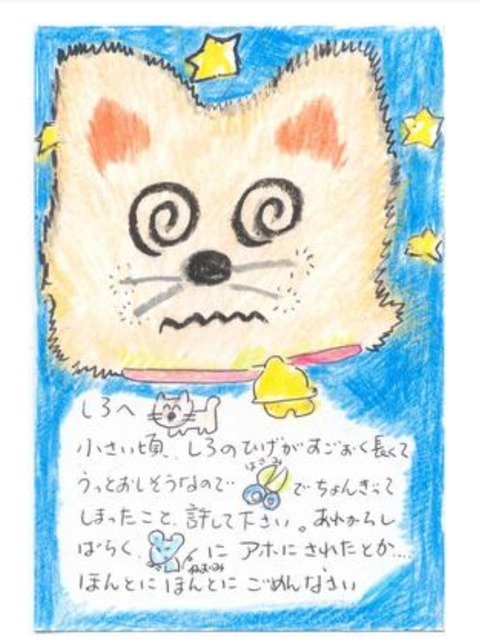 しろへ
小さい頃、しろのひげがすごおく長くて
うっとおしそうなので はさみ でちょんぎって
しまったこと、許して下さい。あれからし
ばらく、ねずみ に アホにされたとか…
ほんとに ほんとに ごめんなさい